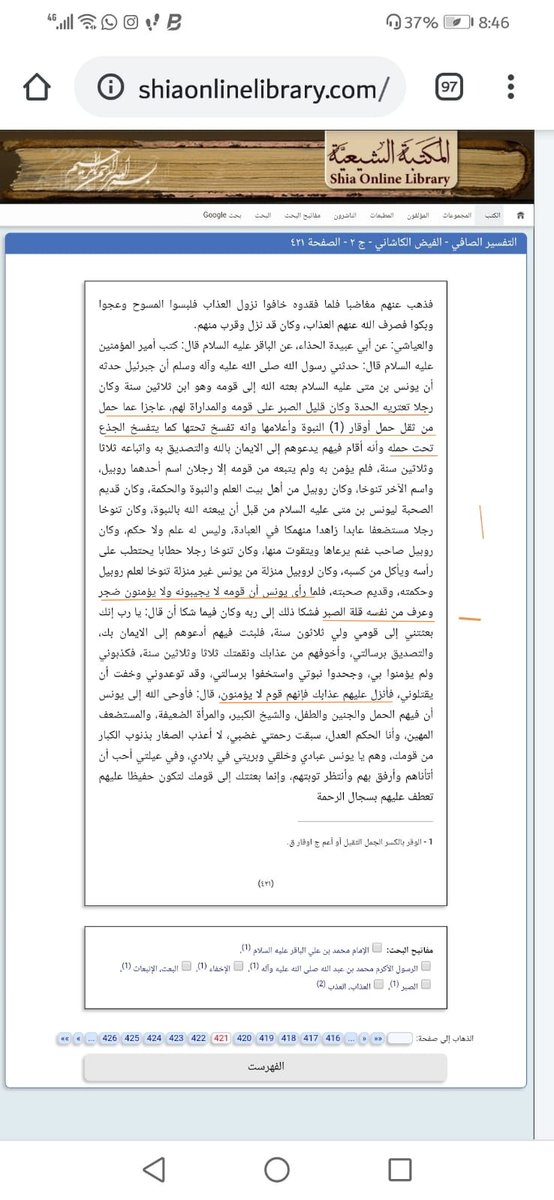 4G
37%
8:46
shiaonlinelibrary.com/
97
المكتبة الشيعية
Shia Online Library
الكتب المجموعات المؤلفون الطبعات الناشرون مفاتيح البحث البحث بحث Google
التفسير الصافي - الفيض الكاشاني - ج ٢ - الصفحة ٤٢١
فذهب عنهم مغاضبا فلما فقدوه خافوا نزول العذاب فلبسوا المسوح وعجوا
وبكوا فصرف الله عنهم العذاب، وكان قد نزل وقرب منهم.
والعياشي: عن أبي عبيدة الحذاء، عن الباقر عليه السلام قال: كتب أمير المؤمنين
عليه السلام قال: حدثني رسول الله صلى الله عليه وآله وسلم أن جبرئيل حدثه
أن يونس بن متى عليه السلام بعثه الله إلى قومه وهو ابن ثلاثين سنة وكان
رجلا تعتريه الحدة وكان قليل الصبر على قومه والمداراة لهم، عاجزا عما حمل
من ثقل حمل أوقار (1) النبوة وأعلامها وانه تفسخ تحتها كما يتفسخ الجذع
تحت حمله وأنه أقام فيهم يدعوهم إلى الايمان بالله والتصديق به واتباعه ثلاثا
وثلاثين سنة، فلم يؤمن به ولم يتبعه من قومه إلا رجلان اسم أحدهما روبيل،
واسم الآخر تنوخا، وكان روبيل من أهل بيت العلم والنبوة والحكمة، وكان قديم
الصحبة ليونس بن متى عليه السلام من قبل أن يبعثه الله بالنبوة، وكان تنوخا
رجلا مستضعفا عابدا زاهدا منهمكا في العبادة، وليس له علم ولا حكم، وكان
روبيل صاحب غنم يرعاها ويتقوت منها، وكان تنوخا رجلا حطابا يحتطب على
رأسه ويأكل من كسبه، وكان لروبيل منزلة من يونس غير منزلة تنوخا لعلم روبيل
وحكمته، وقديم صحبته، فلما رأى يونس أن قومه لا يجيبونه ولا يؤمنون ضجر
وعرف من نفسه قلة الصبر فشكا ذلك إلى ربه وكان فيما شكا أن قال: يا رب إنك
بعثتني إلى قومي ولي ثلاثون سنة، فلبثت فيهم أدعوهم إلى الايمان بك،
والتصديق برسالتي، وأخوفهم من عذابك ونقمتك ثلاثا وثلاثين سنة، فكذبوني
ولم يؤمنوا بي، وجحدوا نبوتي واستخفوا برسالتي، وقد توعدوني وخفت أن
يقتلوني، فأنزل عليهم عذابك فإنهم قوم لا يؤمنون، قال: فأوحى الله إلى يونس
أن فيهم الحمل والجنين والطفل، والشيخ الكبير، والمرأة الضعيفة، والمستضعف
المهين، وأنا الحكم العدل، سبقت رحمتي غضبي، لا أعذب الصغار بذنوب الكبار
من قومك، وهم يا يونس عبادي وخلقي وبريتي في بلادي، وفي عيلتي أحب أن
أتأناهم وأرفق بهم وأنتظر توبتهم، وإنما بعثتك إلى قومك لتكون حفيظا عليهم
تعطف عليهم بسجال الرحمة
1 - الوقر بالكسر الحمل الثقيل أو أعم ج اوقار ق.
(٤٢١)
مفاتيح البحث: الإمام محمد بن علي الباقر عليه السلام (1)،
الرسول الأكرم محمد بن عبد الله صلى الله عليه وآله (1)، الإخفاء (1)، البعث، الإنبعاث (1)،
الصبر (1)، العذاب، العذب (2)
الذهاب إلى صفحة: »» » ... 416 417 418 419 420 421 422 423 424 425 426 ... « ««
الفهرست